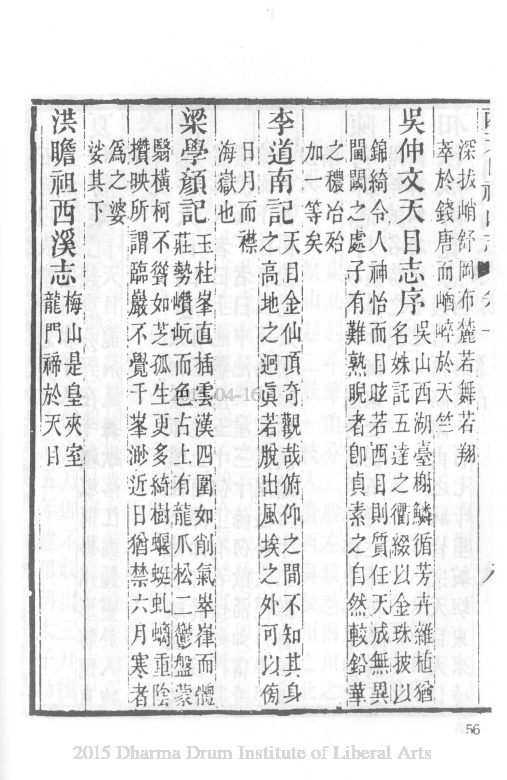 深拔峭舒岡布麓若舞若翔
萃於錢唐而崷崪於天竺
吳仲文天目志序 吳山西湖臺榭鱗循芳卉雜葩猶
之名姝託五達之衢綴以金珠披以
錦綺令人神怡而目眩若西目則質任天成無異
閨閫之處子有難熟睨者卽真素之自然較鉛華
之穠冶殆
加一等矣
李道南記 天目金仙頂奇觀哉俯仰之間不知其身
之高地之迥眞若脫出風埃之外可以侑
日月而襟
海嶽也
梁學顏記 玉柱峯直插雲漢四圍如削氣崒嵂而體
莊勢巑岏而色古上有龍爪松二鬱盤蒙
翳橫柯不聳如芝孤生更多綺樹蝘蜓虬螭重陰
攢映所謂臨巖不覺千峯渺近日猶禁六月寒者
爲之婆
娑其下
洪瞻祖西溪志 梅山是皇夾室
龍門裨於天目
56
2015 Dharma Drum Institute of Liberal Arts